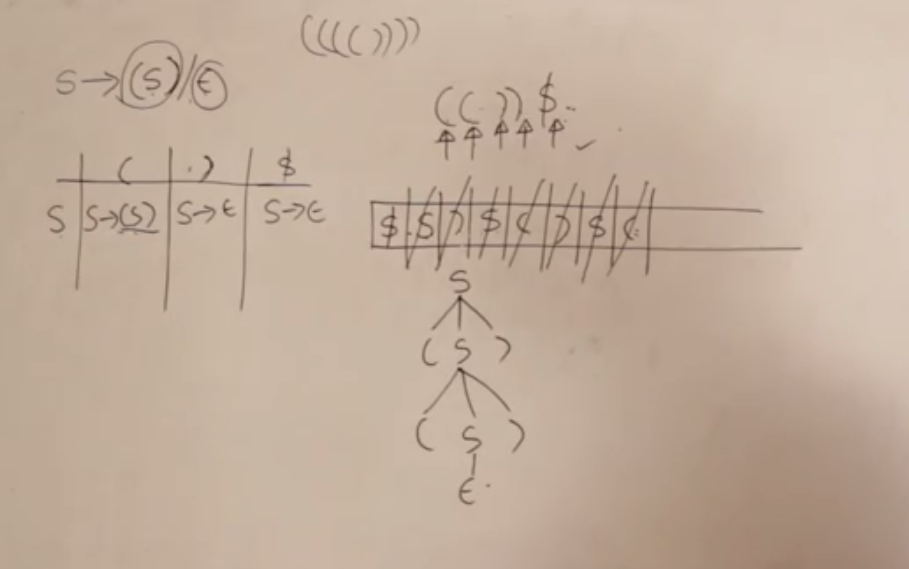 (((())))
S→(S)/ε
(())$
( ) $
S S→(S) S→ε S→ε
$ S ) S ( ) S (
S
( S )
( S )
ε